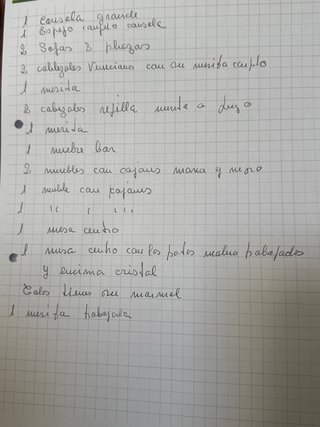 1 Consola grande
1 Espejo conjto consola
2 Sofas 3 plazas
2 cabezales Venecianos con su mesita conjto
1 mesita
2 cabezales rejilla
1 mesita
1 mueble bar
2 muebles con cajones mama y
1 mueble con cajones
1 " " "
1 mesa centro
1 mesa centro con los patas madera trabajadas
y encima cristal
Todos tienen su marmol
1 mesita trabajada